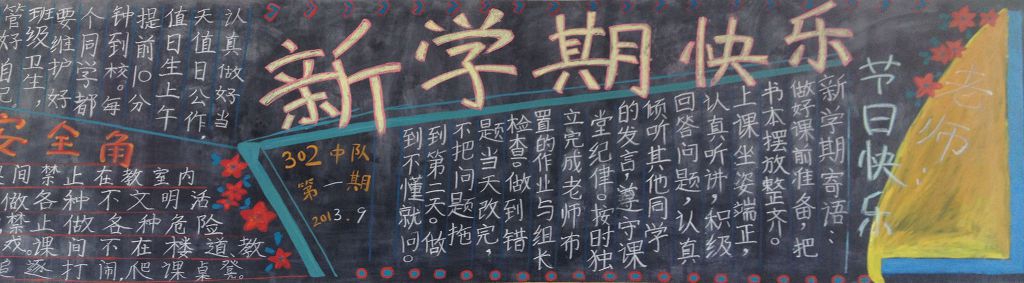 新学期快乐
老师:
节日快乐
新学期寄语:
做好课前准备,把
书本摆放整齐。
上课坐姿端正,
认真听讲,积级
回答问题,认真
倾听其他同学
的发言,遵守课
堂纪律。按时独
立完成老师布
置的作业与组长
检查。做到错
题当天改完,
不把问题拖
到第二天。做
到不懂就问。
302中队
第一期
2013.9
认真做好当
天值日公作,
值日生上午
提前10分
钟到校。每
个同学都
要维护好
班级卫生,
管好自己
安全角
间禁止在教室内
做各种不文明活
禁止做各种危险
戏。课间不在楼道教
追逐打闹,爬课桌凳。